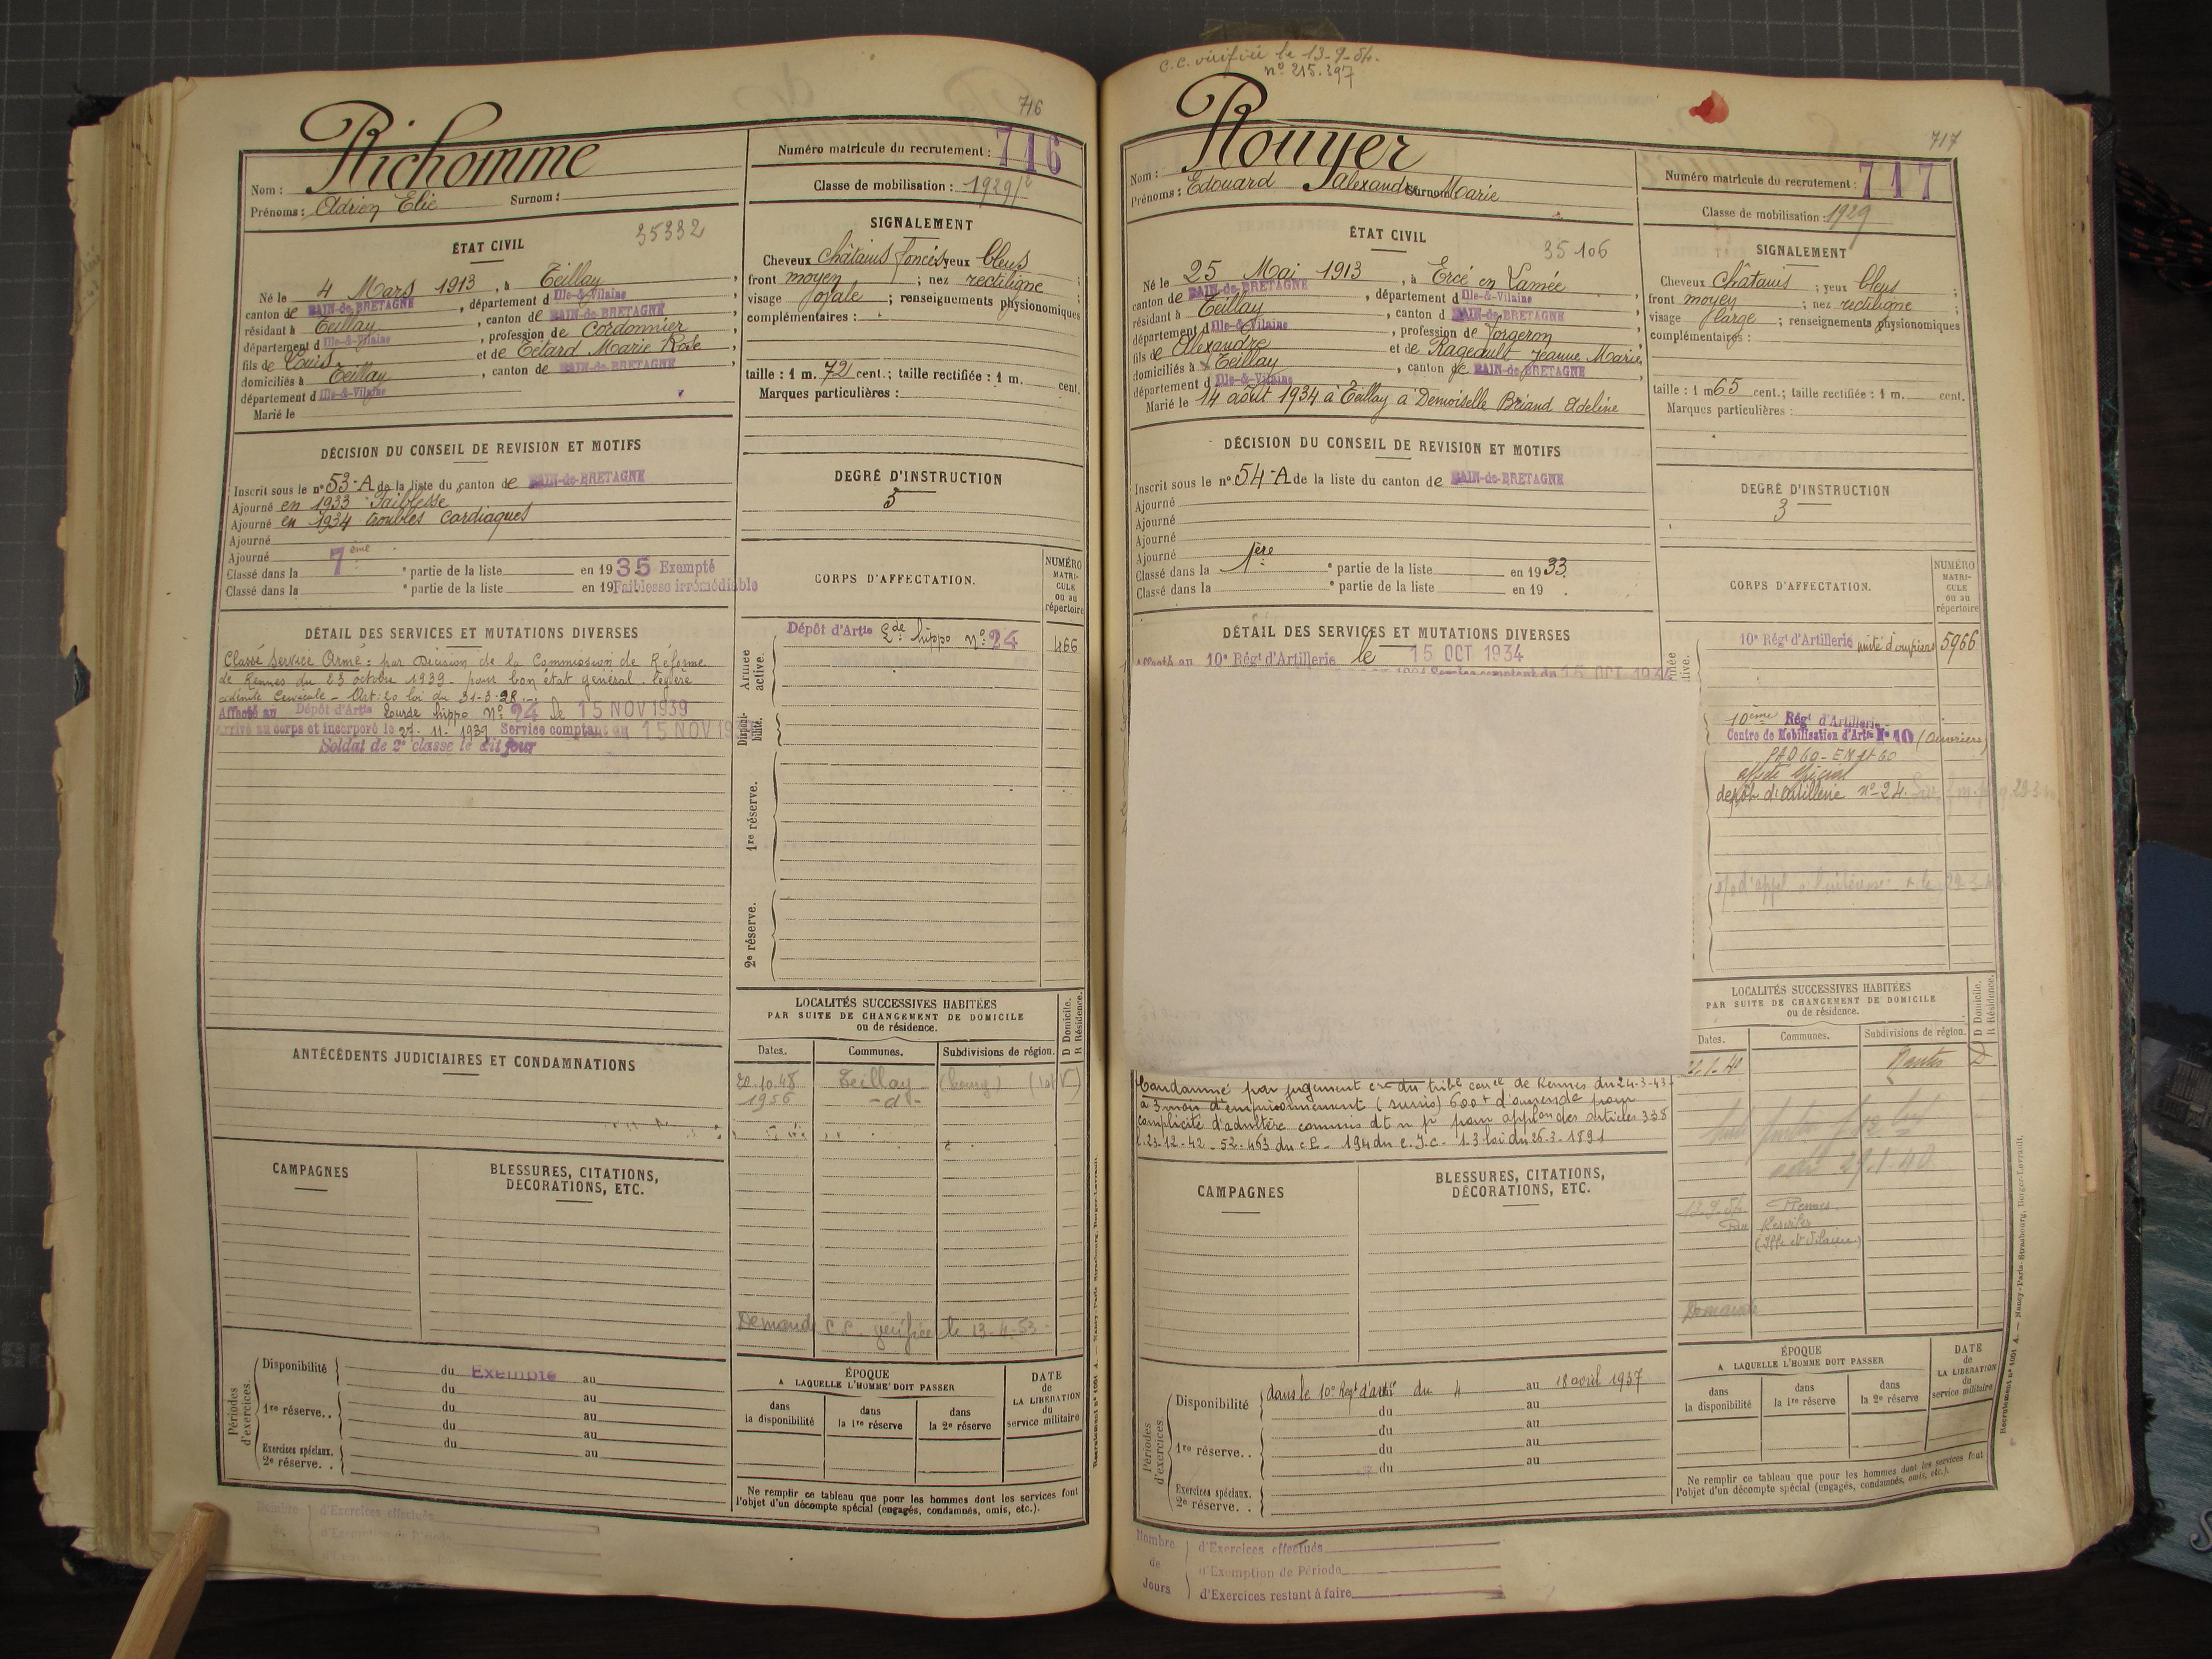 716
Richomme
Nom :
Prénoms : Adrien Elie Surnom :
Numéro matricule du recrutement : 716
Classe de mobilisation : 1929/2
ÉTAT CIVIL
35332
Né le 4 Mars 1913, à Teillay,
canton de BAIN-de-BRETAGNE, département d Ille-&-Vilaine
résidant à Teillay, canton de BAIN-de-BRETAGNE
département d Ille-&-Vilaine, profession de Cordonnier
fils de Louis et de Tétard Marie Rose,
domiciliés à Teillay, canton de BAIN-de-BRETAGNE,
département d Ille-&-Vilaine
Marié le
SIGNALEMENT
Cheveux châtains foncés yeux bleus
front moyen ; nez rectiligne ;
visage ovale ; renseignements physionomiques
complémentaires :
taille : 1 m. 72 cent.; taille rectifiée : 1 m. cent.
Marques particulières :
DÉCISION DU CONSEIL DE REVISION ET MOTIFS
Inscrit sous le n° 53-A de la liste du canton de BAIN-de-BRETAGNE
Ajourné en 1933 Faiblesse
Ajourné en 1934 troubles cardiaques
Ajourné
Ajourné
Classé dans la 7ème partie de la liste en 1935 Exempté
Classé dans la e partie de la liste en 19 Faiblesse irrémédiable
DEGRÉ D'INSTRUCTION
3
CORPS D'AFFECTATION.
NUMÉRO
MATRI-
CULE
ou au
répertoire
DÉTAIL DES SERVICES ET MUTATIONS DIVERSES
Classé Service Armé : par Décision de la Commission de Réforme
de Rennes du 23 octobre 1939 - pour bon état général. légère
adénite Cervicale - Art: 20 loi du 31-3-28
Affecté au Dépôt d'Artie Lourde hippo N° 24 le 15 NOV 1939
Arrivé au corps et incorporé le 27-11-1939 Service comptant du 15 NOV 19
Soldat de 2e classe le dit jour
Armée active.
Dépôt d'Artie Lde hippo n° 24
466
Disponi-
bilité.
1re réserve.
2e réserve.
ANTÉCÉDENTS JUDICIAIRES ET CONDAMNATIONS
LOCALITÉS SUCCESSIVES HABITÉES
PAR SUITE DE CHANGEMENT DE DOMICILE
ou de résidence.
D Domicile.
R Résidence.
Dates. Communes. Subdivisions de région.
20.10.48 Teillay (bourg)
1956 -d°-
CAMPAGNES
BLESSURES, CITATIONS,
DÉCORATIONS, ETC.
Demande C.C. vérifiée le 13-4-53
Périodes d'exercices.
Disponibilité du Exempté au
du au
1re réserve.. du au
du au
Exercices spéciaux.
2e réserve. . du au
ÉPOQUE
A LAQUELLE L'HOMME DOIT PASSER
dans
la disponibilité
dans
la 1re réserve
dans
la 2e réserve
DATE
de
LA LIBÉRATION
du
service militaire
Ne remplir ce tableau que pour les hommes dont les services font
l'objet d'un décompte spécial (engagés, condamnés, omis, etc.).
Nombre d'Exercices effectués
d'Exemption de Période
C.C. vérifiée le 13-9-54.
n° 215.397
717
Rouyer
Nom :
Prénoms : Edouard Alexandre Surnom Marie
Numéro matricule du recrutement : 717
Classe de mobilisation : 1929
ÉTAT CIVIL
35106
Né le 25 Mai 1913, à Ercé en Lamée
canton de BAIN-de-BRETAGNE, département d Ille-&-Vilaine
résidant à Teillay, canton d BAIN-de-BRETAGNE
département d Ille-&-Vilaine, profession de Forgeron
fils de Alexandre et de Rageault Jeanne Marie,
domiciliés à Teillay, canton de BAIN-de-BRETAGNE,
département d Ille-&-Vilaine
Marié le 14 août 1934 à Teillay à Demoiselle Briand Adeline
SIGNALEMENT
Cheveux châtains ; yeux bleus ;
front moyen ; nez rectiligne ;
visage large ; renseignements physionomiques
complémentaires :
taille : 1 m 65 cent.; taille rectifiée : 1 m. cent.
Marques particulières :
DÉCISION DU CONSEIL DE REVISION ET MOTIFS
Inscrit sous le n° 54-A de la liste du canton de BAIN-de-BRETAGNE
Ajourné
Ajourné
Ajourné
Ajourné
Classé dans la 1ère partie de la liste en 1933
Classé dans la e partie de la liste en 19
DEGRÉ D'INSTRUCTION
3
CORPS D'AFFECTATION.
NUMÉRO
MATRI-
CULE
ou au
répertoire
DÉTAIL DES SERVICES ET MUTATIONS DIVERSES
Affecté au 10e Régt d'Artillerie le 15 OCT 1934
Service comptant du 15 OCT 1934
10e Régt d'Artillerie unité d'ouvriers 5966
10ème Régt d'Artillerie
Centre de Mobilisation d'Artie N° 10 (Ouvriers)
PAD 60 - EM 60
affecté spécial
dépôt d'artillerie n° 24.
LOCALITÉS SUCCESSIVES HABITÉES
PAR SUITE DE CHANGEMENT DE DOMICILE
ou de résidence.
D Domicile.
R Résidence.
Dates. Communes. Subdivisions de région.
Nantes D
29.1.40
13.9.54 Rennes.
(Ille et Vilaine)
Demande
Condamné par jugement du tribal correl de Rennes du 24-3-43
à 3 mois d'emprisonnement (sursis) 600f d'amende pour
complicité d'adultère commis pour applon des articles 338
L. 23-12-42 - 52-463 du c.P. - 194 du c.I.c. - 1.3 loi du 26.3.1891
CAMPAGNES
BLESSURES, CITATIONS,
DÉCORATIONS, ETC.
Périodes d'exercices.
Disponibilité dans le 10e Régt d'artie du 4 au 18 avril 1937
du au
du au
1re réserve.. du au
du au
Exercices spéciaux.
2e réserve. .
ÉPOQUE
A LAQUELLE L'HOMME DOIT PASSER
dans
la disponibilité
dans
la 1re réserve
dans
la 2e réserve
DATE
de
LA LIBÉRATION
du
service militaire
Ne remplir ce tableau que pour les hommes dont les services font
l'objet d'un décompte spécial (engagés, condamnés, omis, etc.).
Recrutement n° 1091 A. — Nancy-Paris-Strasbourg, Berger-Levrault.
Nombre
de
Jours
d'Exercices effectués
d'Exemption de Période
d'Exercices restant à faire